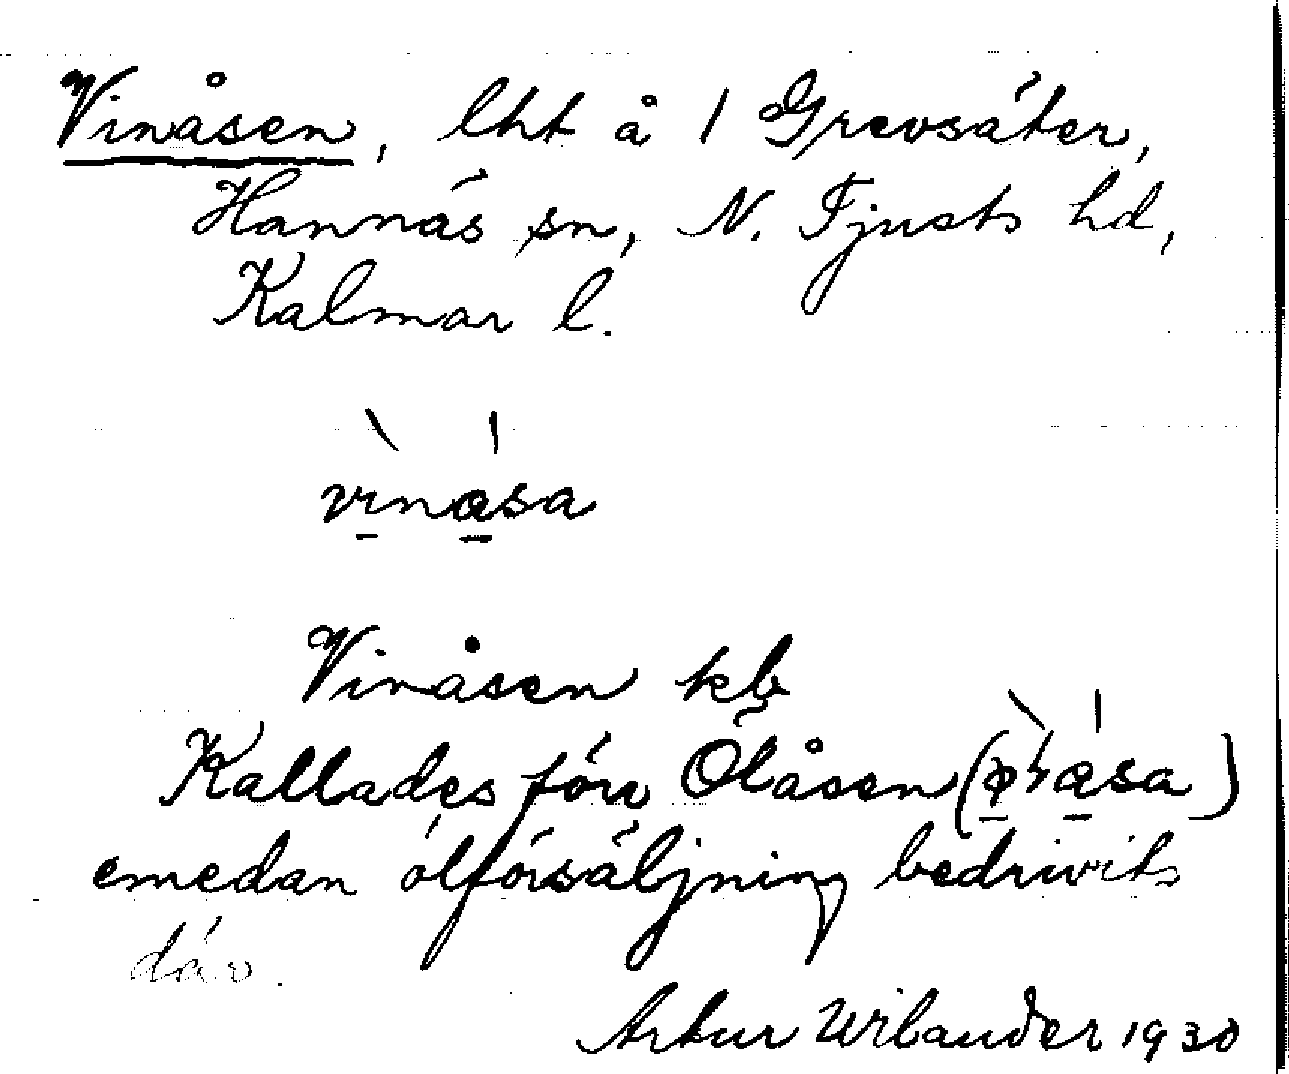 Vinåsen, lht å 1 Grevsäter,
Hannäs sn, N. Tjusts hd,
Kalmar l.
vìnása
Vinåsen kb
Kallades förr Ölåsen
emedan ölförsäljning bedrivits
där.
Artur Wilander 1930